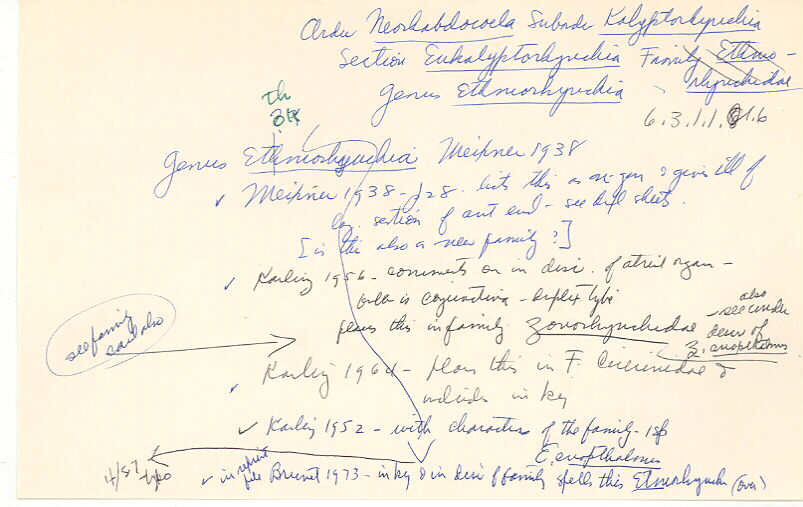 Order Neorhabdocoela Suborder Kalyptorhynchia
Section Eukalyptorhynchia Family Ethmo-
rhynchidae
Genus Ethmorhynchia
6.3.1.1.
Genus Ethmorhynchia Meixner 1938
✓ Meixner 1938 - lists this as n. gen & gives ill of
section of ant end - see sheets.
[is this also a new family?]
✓ Karling 1956 - comments on in disc. of atrial organ -
is conjunctiva - duplex type
places this in family Zonorhynchidae
also
- see under
descr of
Z. anopthalmus
see family
card also
✓ Karling 1964 - places this in F. Cicerinidae &
includes in key
✓ Karling 1952 - with characters of the family - 1 sp
E. anopthalmus
4/87 typo
✓ in reprint file Brunet 1973 - in key & in disc of family spells this Etmorhynchia (over)